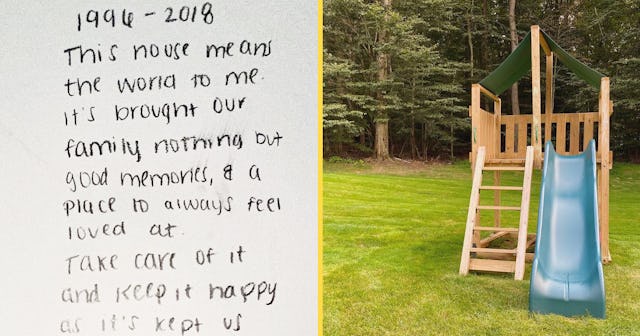 1996 - 2018
This house means
the world to me.
It's brought our
family nothing but
good memories, & a
place to always feel
loved at.
Take care of it
and keep it happy
as it's kept us